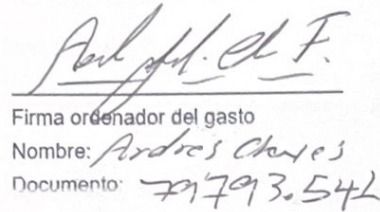 Firma ordenador del gasto
Nombre: Andres Chaves
Documento: 79793.542